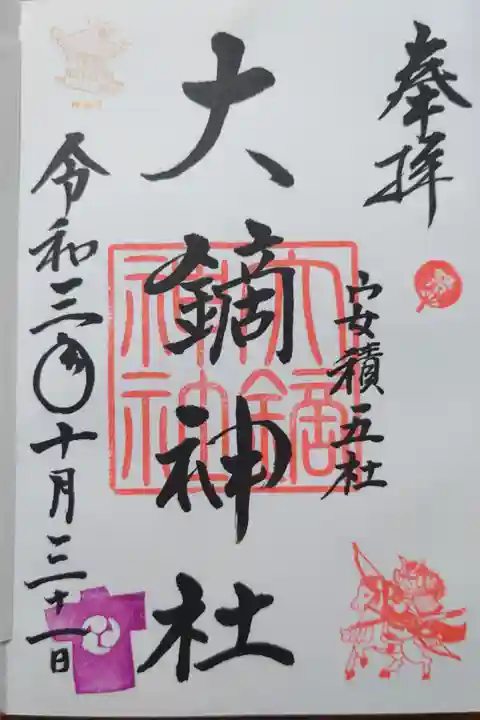 奉拝
安積五社
大鏑神社
大鏑神社
令和三年十月三十一日